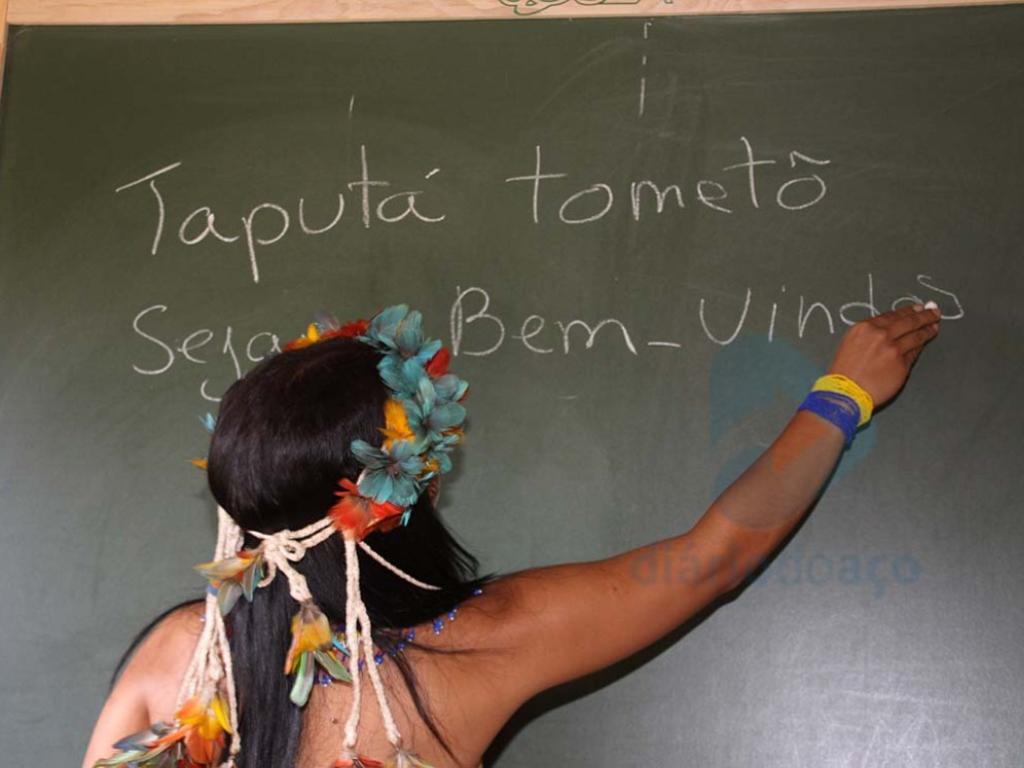 Taputá tometô
Seja Bem-Vindos
diáriodoaço